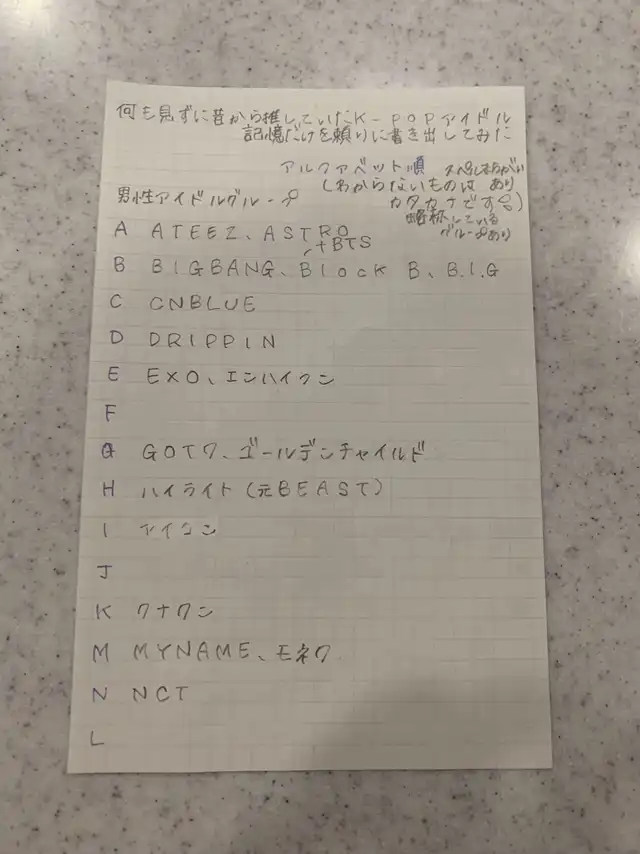 何も見ずに昔から推していたK-POPアイドル
記憶だけを頼りに書き出してみた
アルファベット順
スペルまちがい
あり
(わからないものは
カタカナです。)
略称している
グループあり
男性アイドルグループ
A ATEEZ、ASTRO
+BTS
B BIGBANG、Block B、B.I.G
C CNBLUE
D DRIPPIN
E EXO、エンハイフン
F
G GOT7、ゴールデンチャイルド
H ハイライト(元BEAST)
I アイコン
J
K クナクン
M MYNAME、モネク
N NCT
L